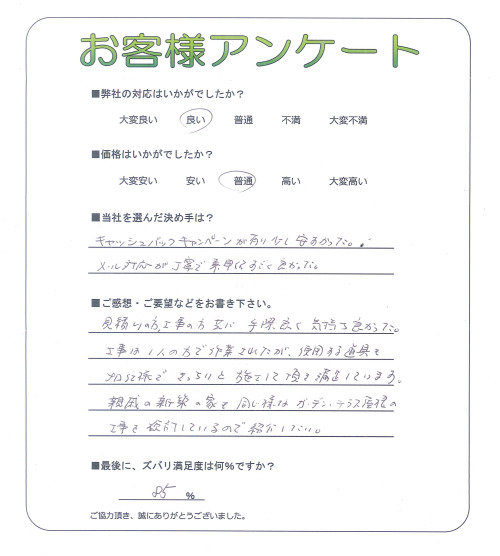 お客様アンケート
■弊社の対応はいかがでしたか？
大変良い 良い 普通 不満 大変不満
■価格はいかがでしたか？
大変安い 安い 普通 高い 大変高い
■当社を選んだ決め手は？
キャッシュバックキャンペーンが有り少し安かった。
メール対応が丁寧で素早くすごく良かった。
■ご感想・ご要望などをお書き下さい。
見積りの方、工事の方 共に 手際良く 気持ち良かった。
工事は1人の方で作業されたが、使用する道具も
プロ仕様で きっちりと 施工して頂き満足しています。
親戚の新築の家も同じ様な ガーデンテラス屋根の
工事を検討しているので紹介したい。
■最後に、ズバリ満足度は何%ですか？
85 %
ご協力頂き、誠にありがとうございました。